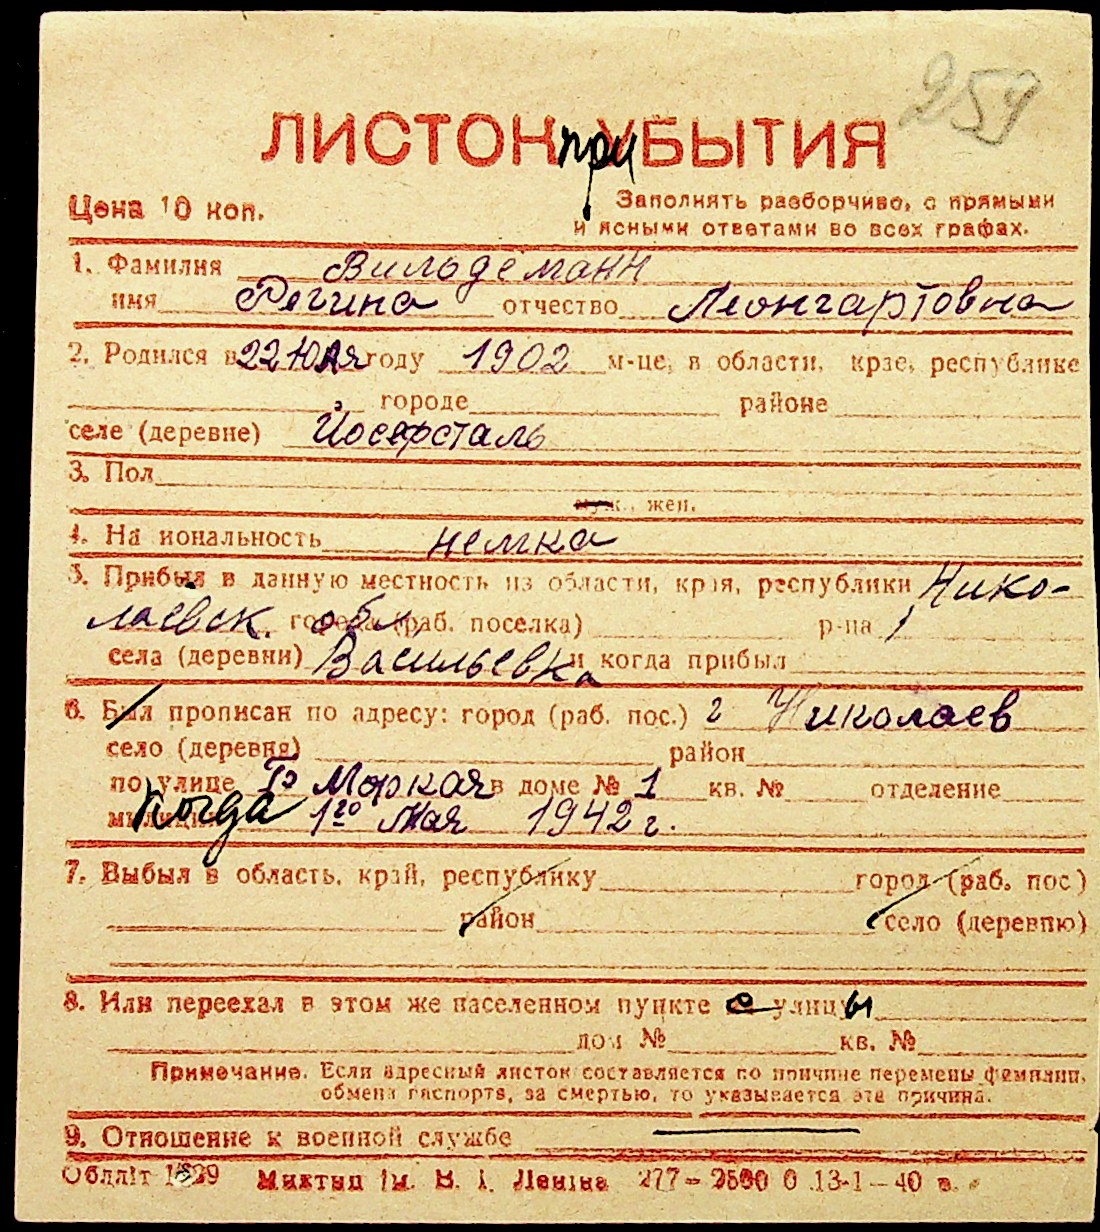 259
ЛИСТОК при УБЫТИЯ
Цена 10 коп.
Заполнять разборчиво, с прямыми
и ясными ответами во всех графах.
1. Фамилия Вильдеманн
имя Регина отчество Леонгартовна
2. Родился в 22 Юля году 1902 м-це, в области, крае, республике
городе районе
селе (деревне) Йосефсталь
3. Пол
муж., жен.
4. На иональность немка
5. Прибыл в данную местность из области, края, республики Нико-
лаевск. обл, города (раб. поселка) р-на
села (деревни) Васильевка и когда прибыл
6. Был прописан по адресу: город (раб. пос.) г Николаев
село (деревня) район
по улице Моркая в доме № 1 кв. № отделение
милиции Когда 1го Мая 1942 г.
7. Выбыл в область, край, республику город (раб. пос.)
район село (деревню)
8. Или переехал в этом же населенном пункте с улицы
дом № кв. №
Примечание. Если адресный листок составляется по причине перемены фамилии,
обмена паспорта, за смертью, то указывается эта причина.
9. Отношение к военной службе
Облліт 1829 Миктип ім. В. І. Леніна 277—2500 0 .13-1—40 в.